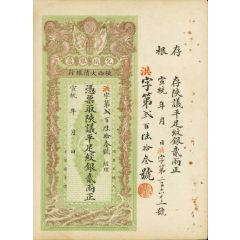 存根
存陝議平足紋銀貳兩正
宣統 年 月 日 洪字第二百六十三號
洪字第貳百陸拾叁號
陝西大清銀行
洪字第貳百陸拾叁號 經理
憑票取陝議平足紋銀貳兩正
宣統 年 月 日